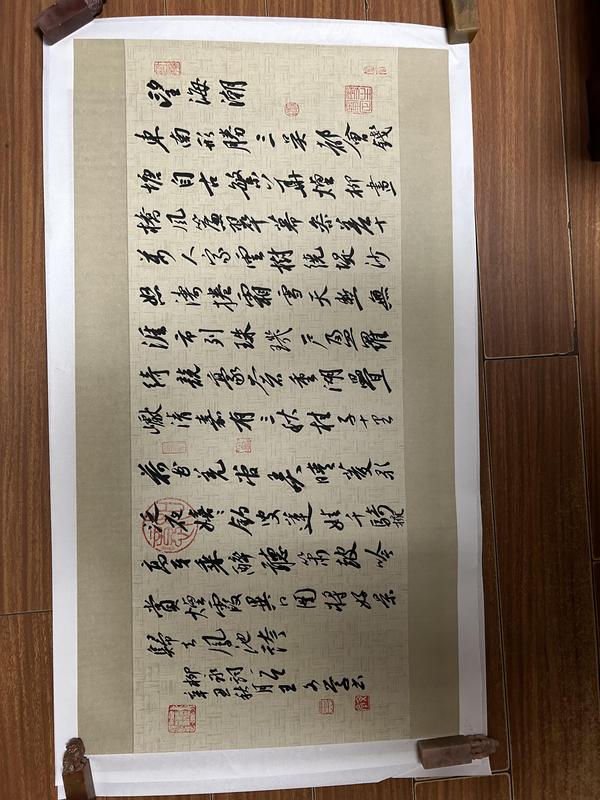 望海潮
東南形勝三吴都會錢
塘自古繁華煙柳畫
橋風簾翠幕参差十
萬人家雲樹繞堤沙
怒濤捲霜雪天塹無
涯市列珠璣戶盈羅
綺競豪奢重湖疊
巘清嘉有三秋桂子十里
荷花羌管弄晴菱歌
泛夜嬉嬉釣叟蓮娃千騎擁
高牙乘醉聽簫鼓吟
賞煙霞異日圖將好景
歸去鳳池誇
柳永詞
辛丑秋月王書